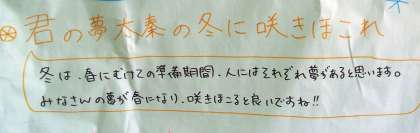 君の夢太秦の冬に咲きほこれ
冬は、春にむけての準備期間、人にはそれぞれ夢があると思います。
みなさんの夢が春になり、咲きほこると良いですね!!